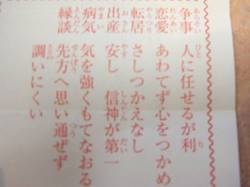 争事 人に任せるが利
恋愛 あわてず心をつかめ
転居 さしつかえなし
出産 安し 信神が第一
病気 気を強くもてなおる
縁談 先方へ思い通ぜず
調いにくい